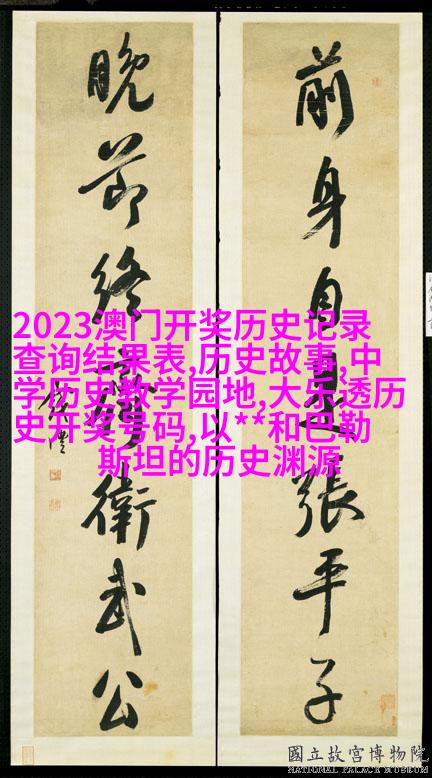 前身自是張平子
晚節終衛武公
2023澳门开奖历史记录
查询结果表,历史故事,中
学历史教学园地,大乐透历
史开奖号码,以**和巴勒
斯坦的历史渊源
國立故宮博物院
NATIONAL PALACE MUSEUM